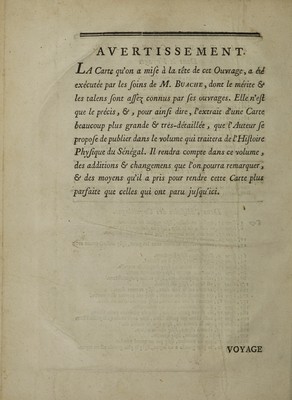 AVERTISSEMENT.
LA Carte qu'on a mise à la tête de cet Ouvrage, a été
exécutée par les soins de M. BUACHE, dont le mérite &
les talens sont assez connus par ses ouvrages. Elle n'est
que le précis, &, pour ainsi dire, l'extrait d'une Carte
beaucoup plus grande & très-détaillée, que l'Auteur se
propose de publier dans le volume qui traitera de l'Histoire
Physique du Sénégal. Il rendra compte dans ce volume,
des additions & changemens que l'on pourra remarquer,
& des moyens qu'il a pris pour rendre cette Carte plus
parfaite que celles qui ont paru jusqu'ici.
VOYAGE